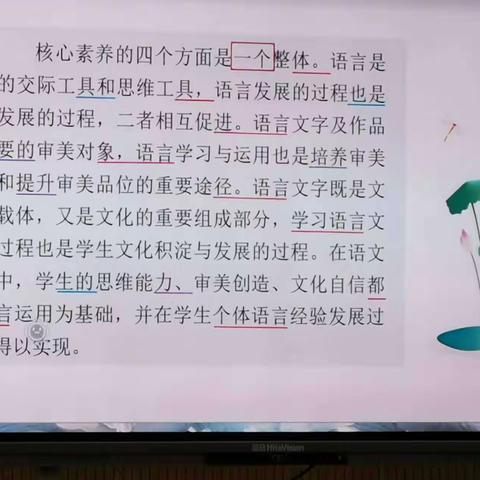 核心素养的四个方面是一个整体。语言是
的交际工具和思维工具，语言发展的过程也是
发展的过程，二者相互促进。语言文字及作品
要的审美对象，语言学习与运用也是培养审美
和提升审美品位的重要途径。语言文字既是文
载体，又是文化的重要组成部分，学习语言文
过程也是学生文化积淀与发展的过程。在语文
中，学生的思维能力、审美创造、文化自信都
言运用为基础，并在学生个体语言经验发展过
得以实现。